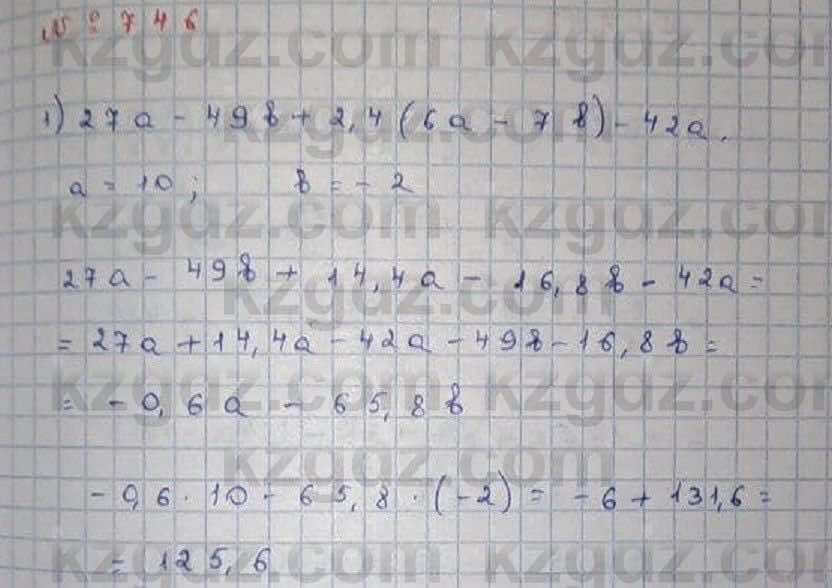 № 746
kzgdz.com
1) 27a - 49b + 2,4 (6a - 7b) - 42a.
a = 10; b = - 2
kzgdz.com kzgdz.co
27a - 49b + 14,4a - 16,8b - 42a =
kzgdz.com
= 27a + 14,4a - 42a - 49b - 16,8b =
= - 0,6a - 65,8b
kzgdz.com kzgdz.co
kzgdz.com
- 0,6 · 10 - 65,8 · (-2) = - 6 + 131,6 =
= 125,6
kzgdz.com kzgdz.co